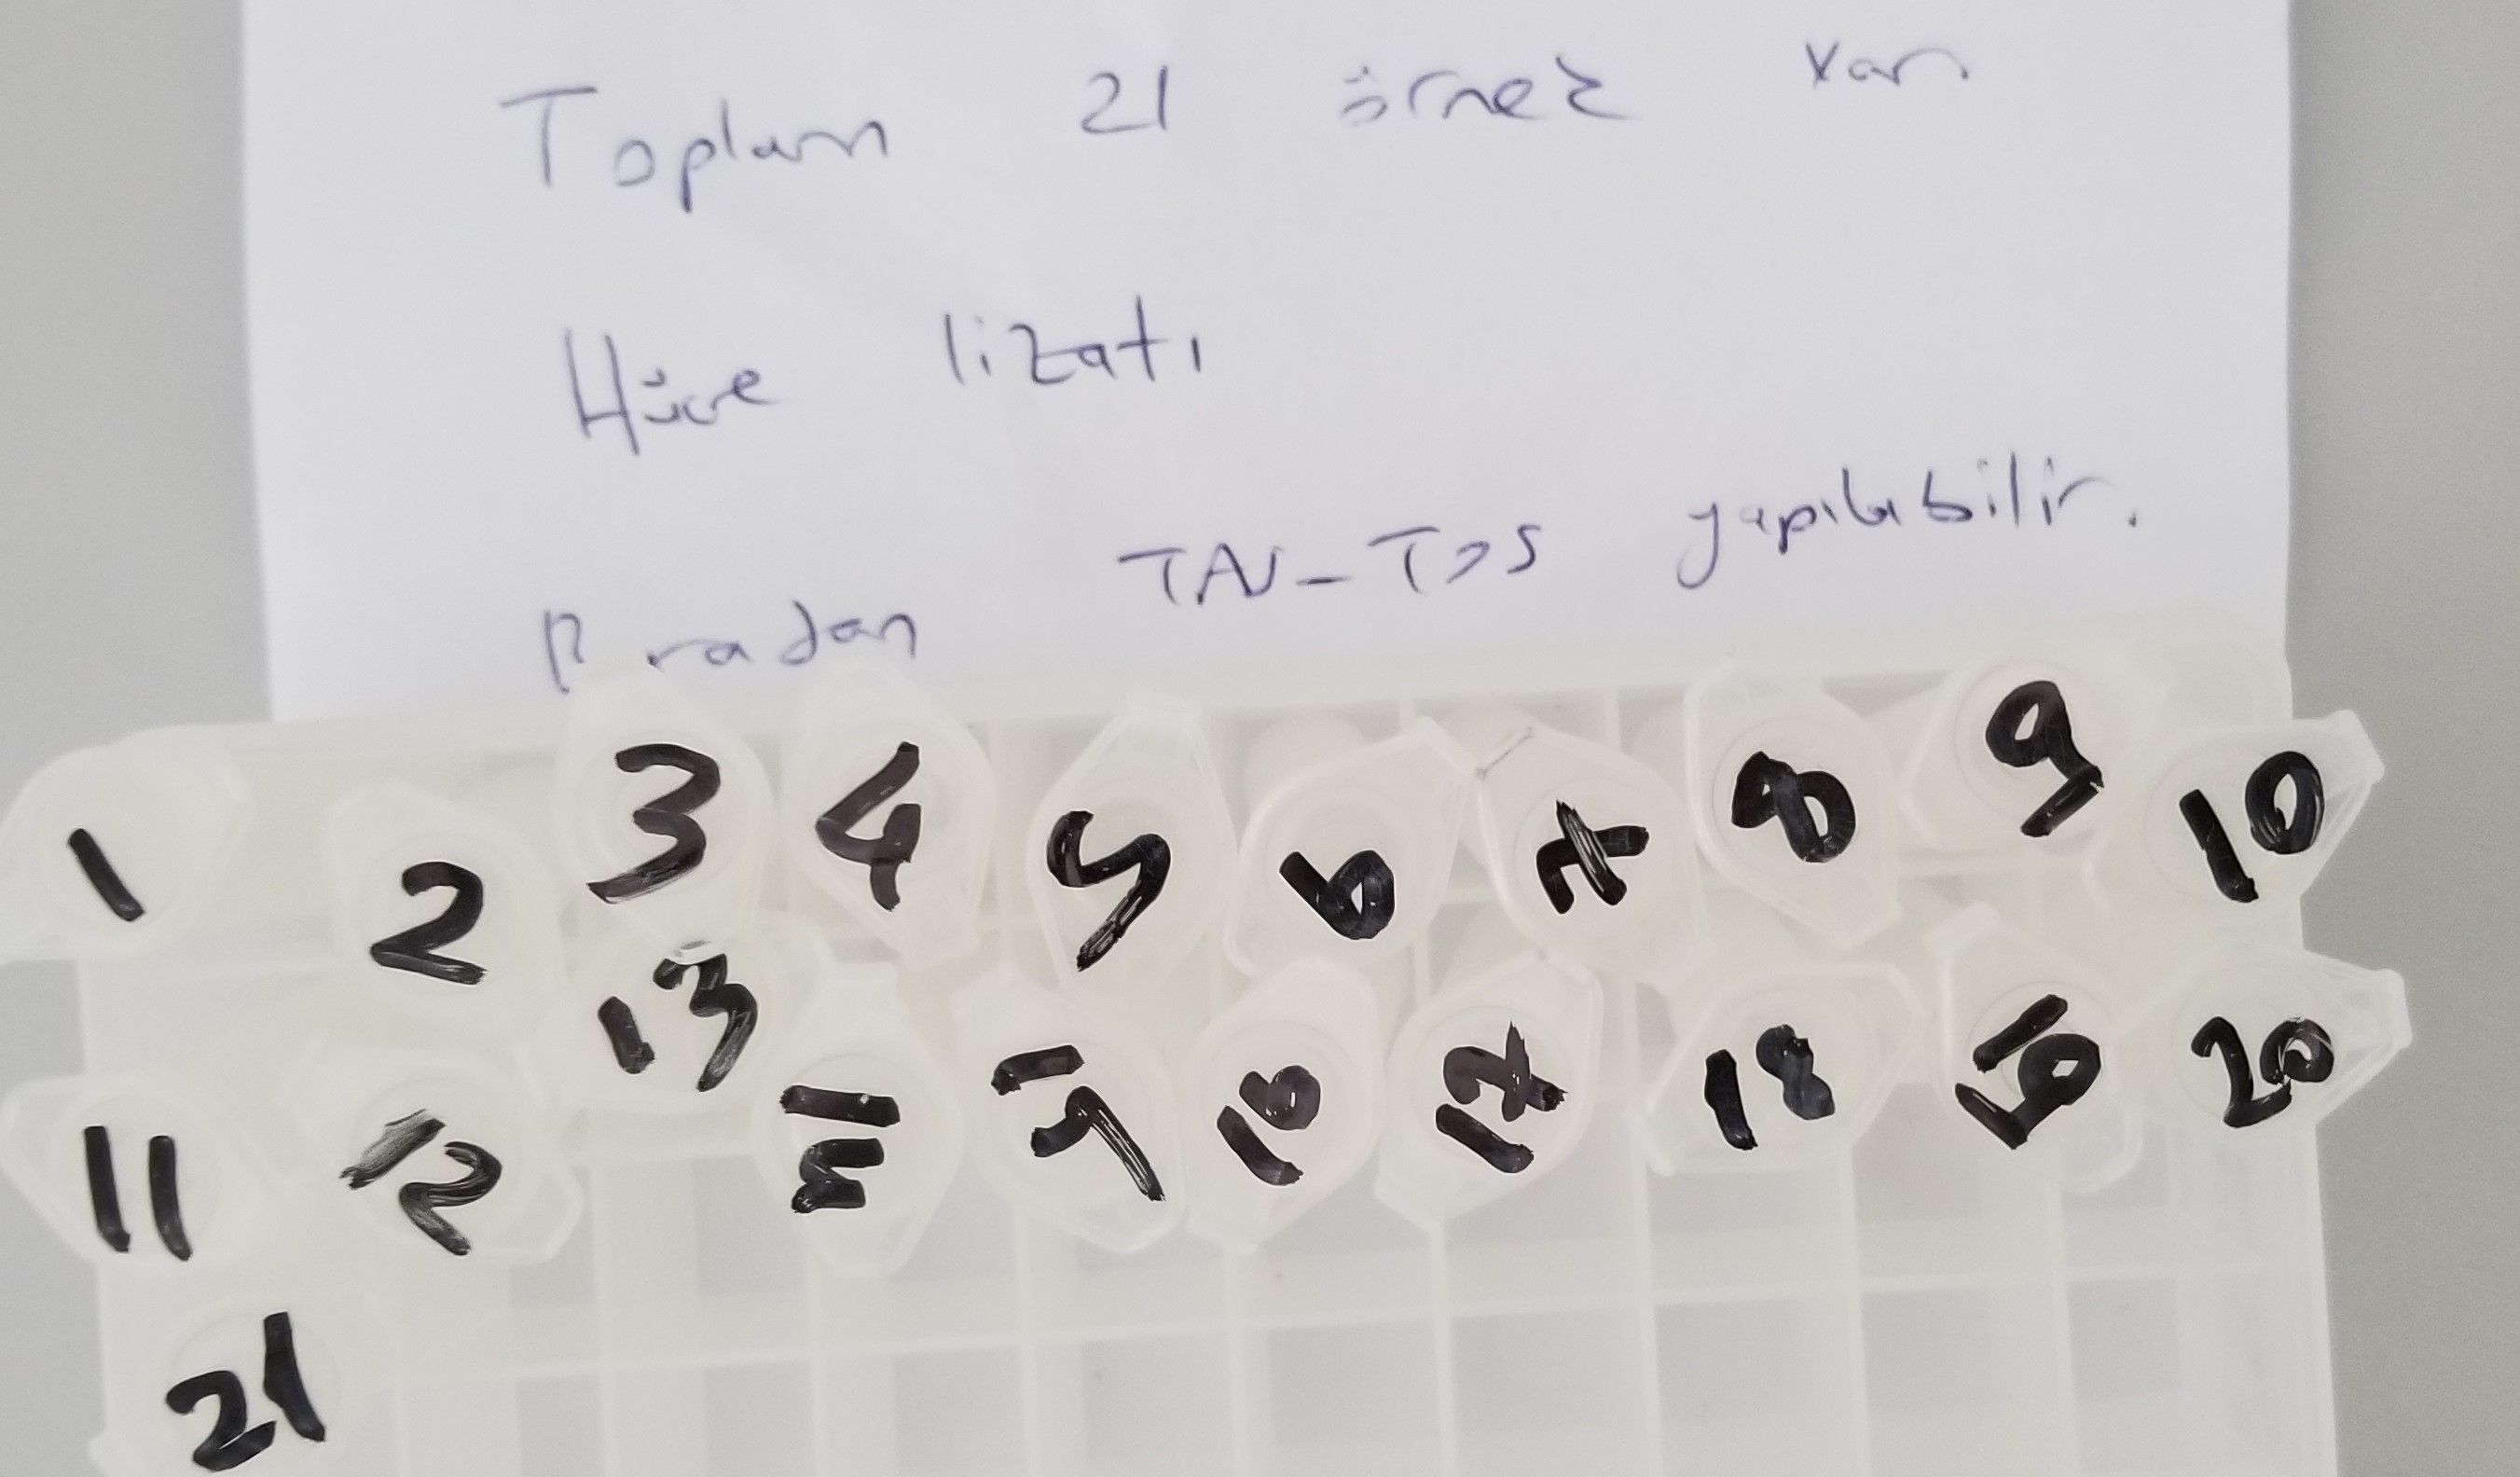 Toplam 21 örnek var
Hücre lizatı
Buradan TAS-TOS yapılabilir.
1 2 3 4 5 6 7 8 9 10
11 12 13 16 17 18 19 20
21